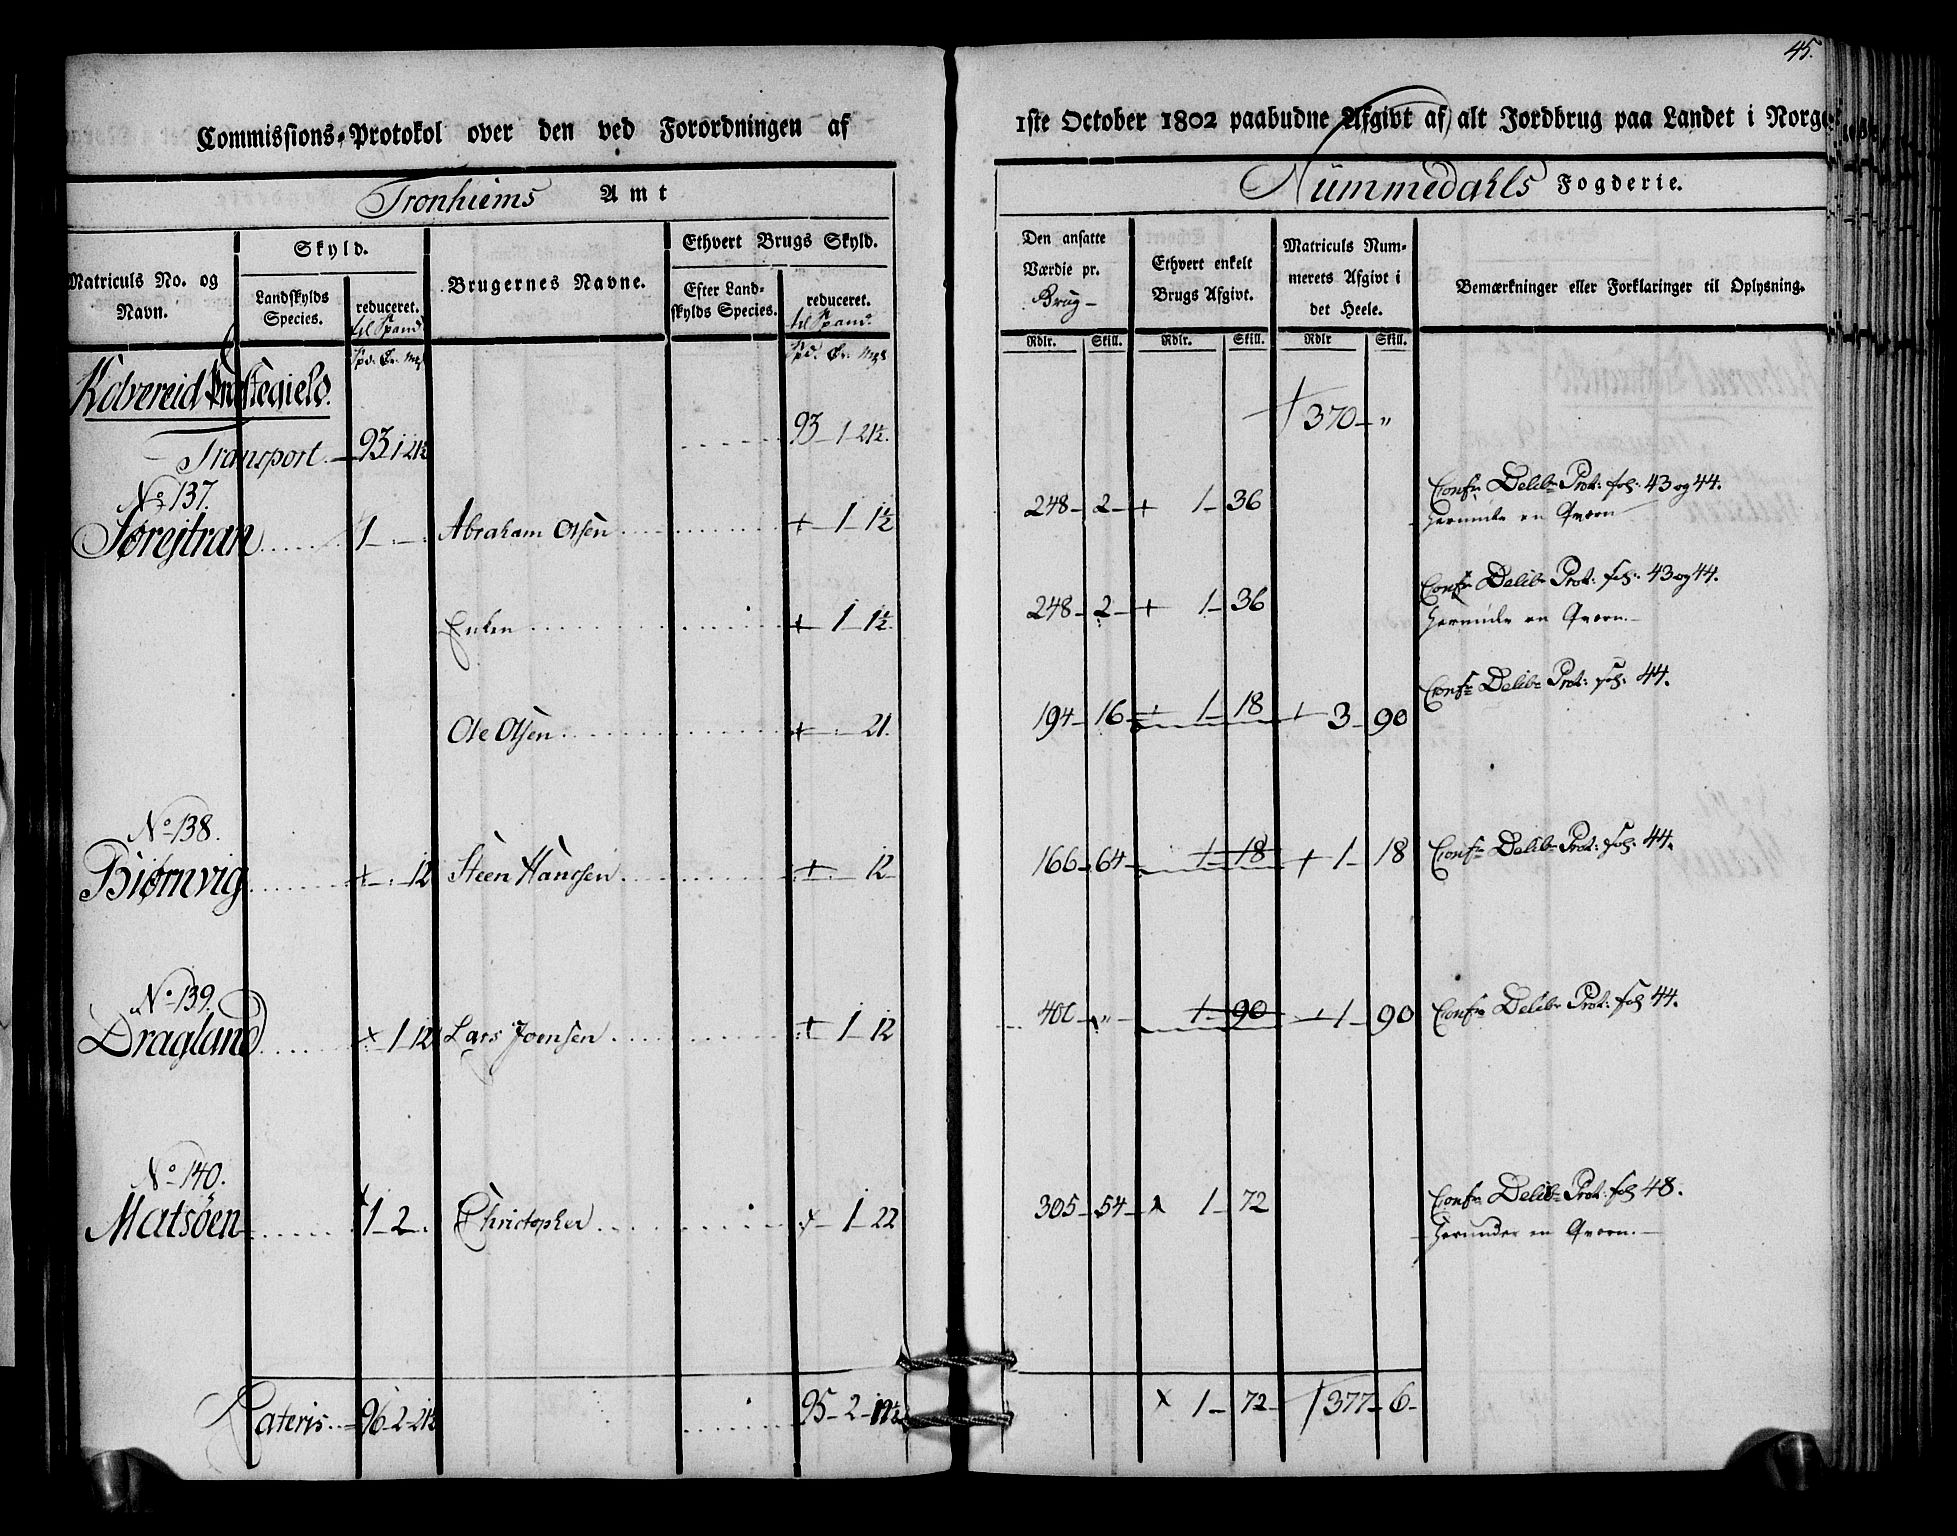 45.
Commissions-Protokol over den ved Forordningen af
1ste October 1802 paabudne Afgivt af alt Jordbrug paa Landet i Norge
Tronhiems Amt
Nummedahls Fogderie.
Matriculs No. og Navn.
Skyld.
Landskylds Species.
reduceret. til Spand
Brugernes Navne.
Ethvert Brugs Skyld.
Efter Landskylds Species.
reduceret. til Spand.
Den ansatte Værdie pr. Brug
Ethvert enkelt Brugs Afgivt.
Matriculs Nummerets Afgivt i det Heele.
Bemærkninger eller Forklaringer til Oplysning.
Rdlr. Skill. Rdlr. Skill. Rdlr Skill.
Kolvereid Præstegield.
Transport. 93 1 21½ 93 1 21½. 370 "
No 137.
Sørejtran 1 Abraham Olsen 1 1½ 248 2 1 36 Confr Delibr Prot: fol: 43 og 44.
herunder en Qværn
Enken 1 1½ 248 2 1 36 Confr Delibr Prot: fol: 43 og 44.
herunder en Qværn.
Ole Olsen 21. 194 16 1 18 3 90 Confr Delibr Prot: fol: 44.
No 138.
Biørnvig 12 Steen Hanssen 12 166 64 1 18 1 18 Confr Delibr Prot: fol: 44.
No 139.
Dragland 1 12 Lars Joensen 1 12 401 " 1 90 1 90 Confr Delibr Prot: fol 44.
No 140.
Matsöen 1 2. Christopher 1 22 305 54 1 72 Confr Delibr Prot: fol 48.
herunder en Qværn.
Lateris 96 2 21½ 95 2 19½ 1 72 377 6